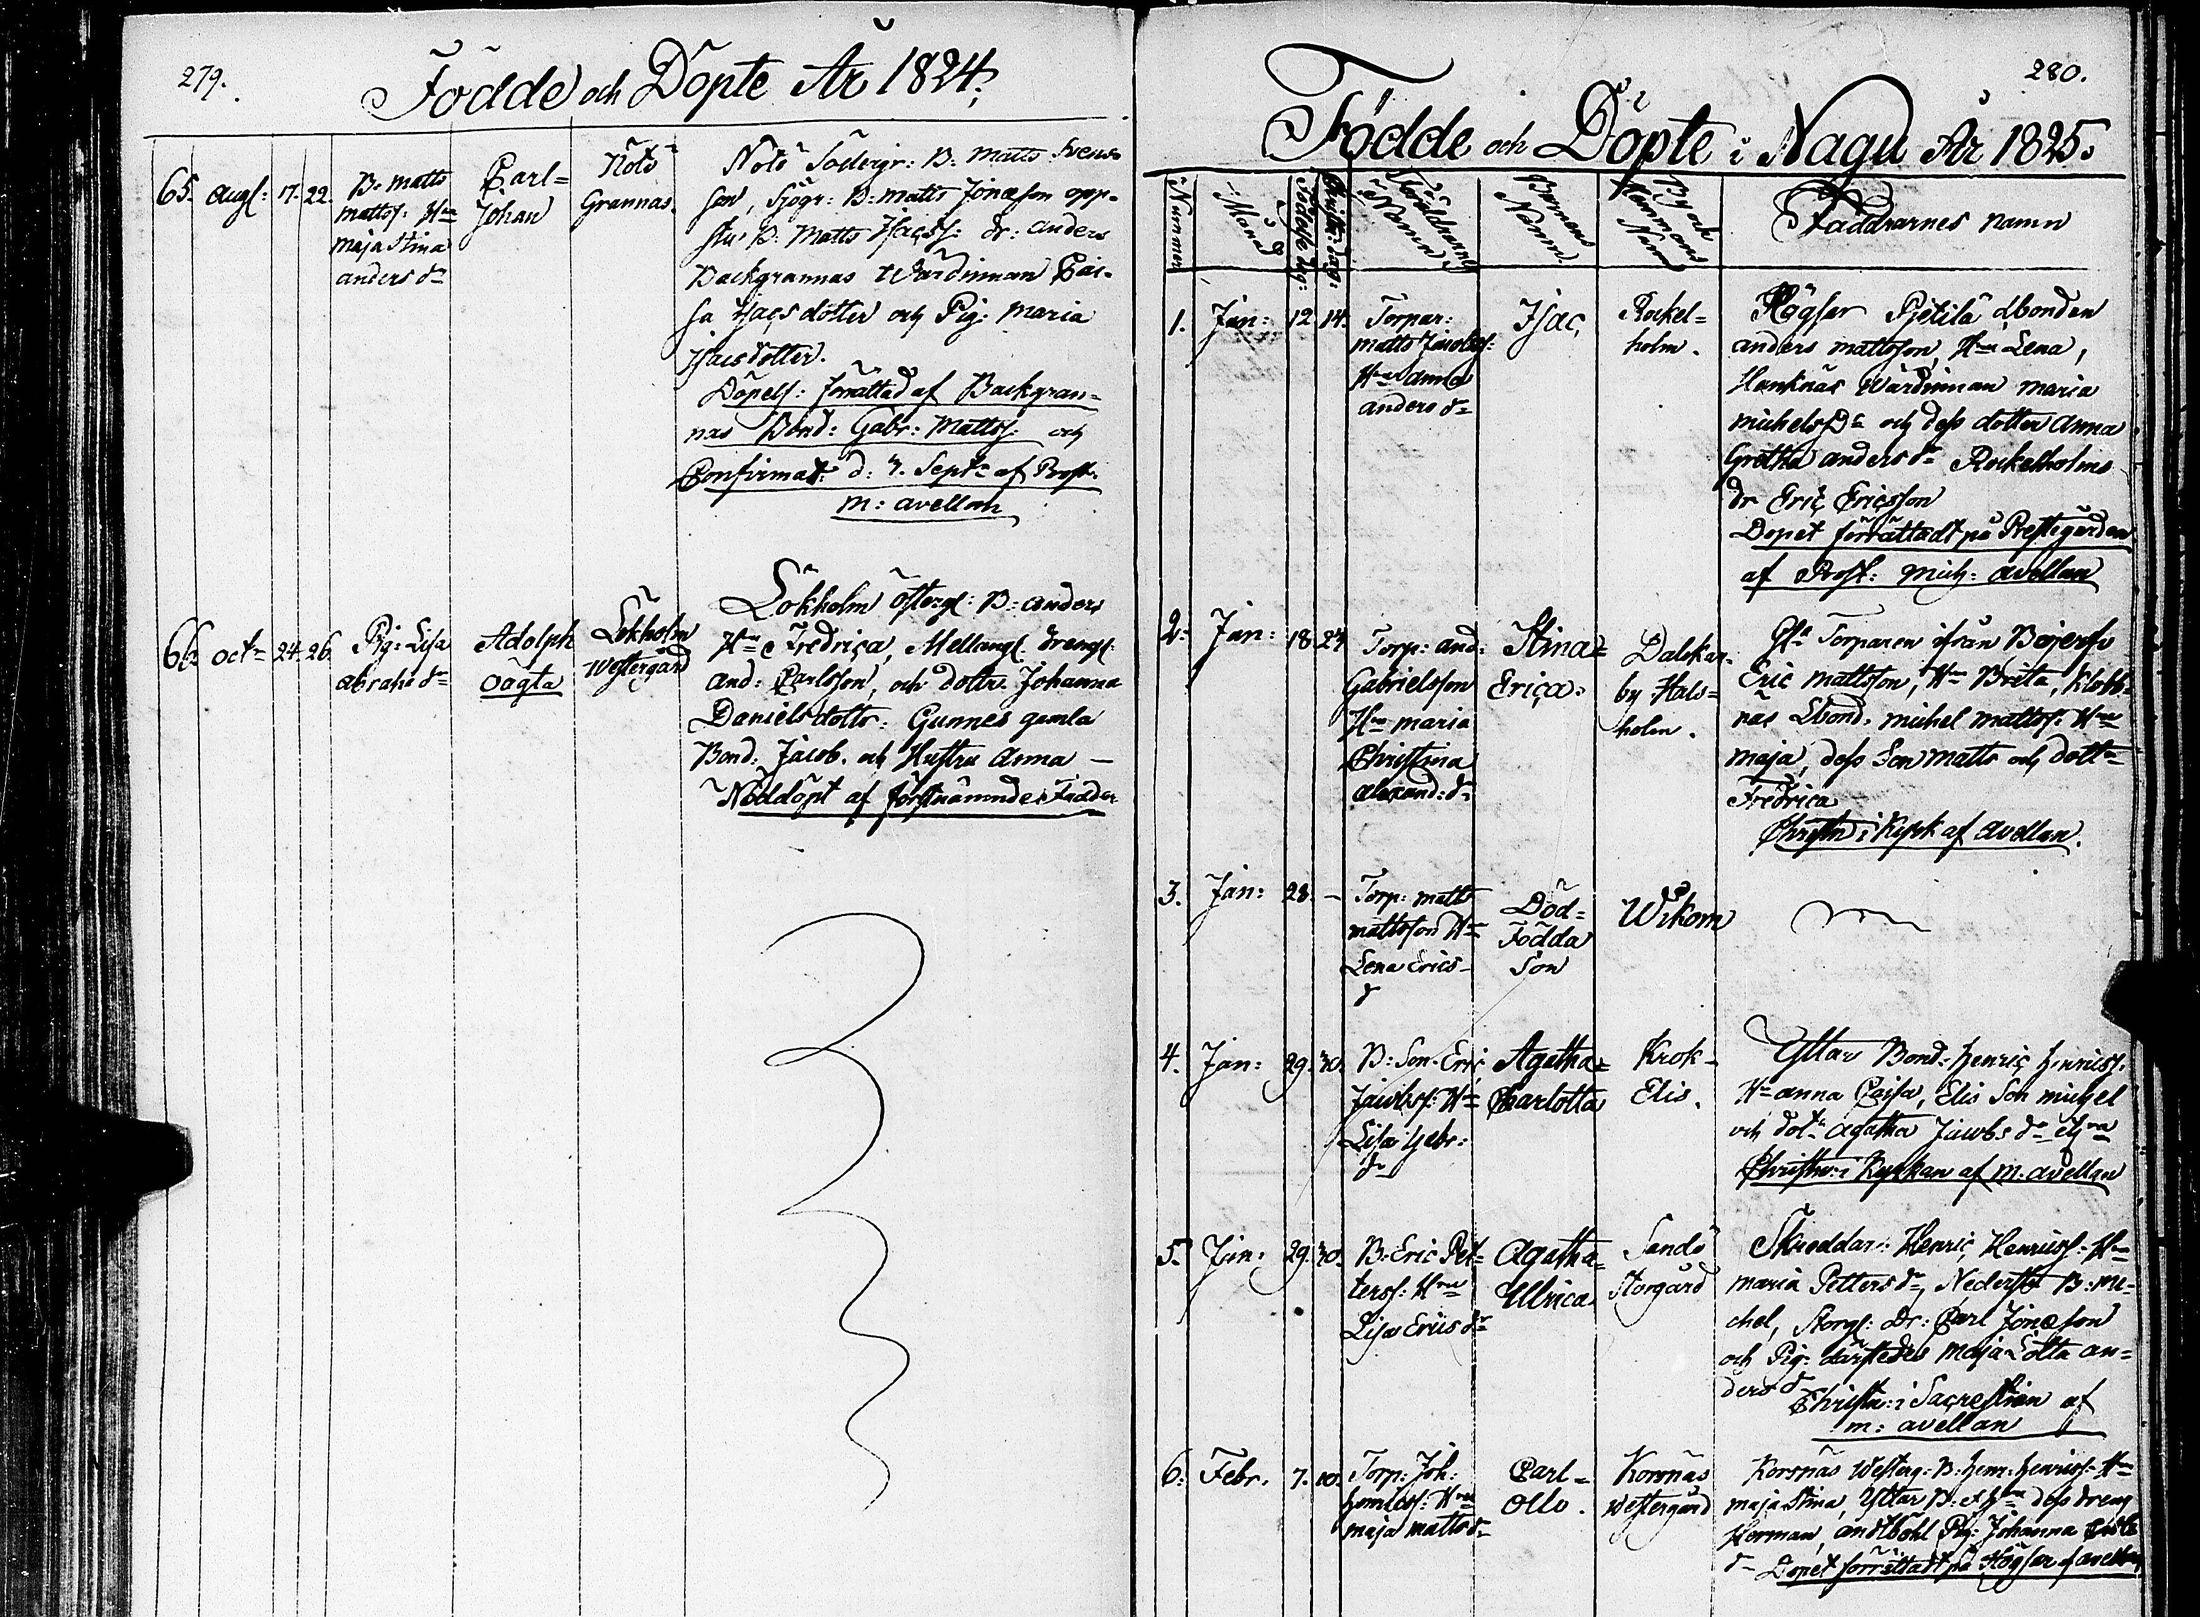 279.
Födde och Döpte År 1824.
65. Augs: 17. 22.
B. Matts
Matts: Hu
Maja Stina
Anders dr
Carl=
Johan
Nötö
Grannas.
Nötö Södergr: B: Matts Svens
son, Sjögr: B: Matts Jonæson opp=
stu B: Matts Isacss: dr: Anders
Backgrannas Wärdinnan Cai=
sa Isacsdotter och Pig: Maria
Isacsdotter.
Döpels: förrättad af Backgran=
nas Bond: Gabr: Mattss: och
Confirmat: d: 7. Sept: af Prost.
M: Avellan
66. Octr 24. 26.
Pig: Lisa
Abrahs dr
Adolph
oägta
Lökholm
Westergård
Lökholm Österg: B: Anders
Hu Fredrica, Mellang: drengs:
And: Carlsson, och dottr. Johanna
Danielsdottr: Gunnes gamla
Bond: Jacob. och Hustru Anna —
Nöddöpt af förstnämnde Fadder
280.
Födde och Döpte i Nagu År 1825.
Nummer
Månad
Födelse dag:
Christn: dag:
Föräldrarnes
Namn
Barnens
Namn.
By och
Hemmans
Namn
Faddrarnes namn
1. Jan: 12. 14.
Torpar:
Matts Jacobss:
Hu Anna
Anders dr
Isac
Rockel=
holm.
Högsar Pjetilä dbonden
Anders Mattsson, Hu Lena,
Hanknäs Wärdinnan Maria
Michels Dr och dess dotter Anna
Gretha Anders dr Rockelholms
dr Eric Ericsson
Dopet förrättadt på Prestegården
af Prost: Mich: Avellan
2. Jan: 18. 23.
Torp: And:
Gabrielsson
Hu Maria
Christina
Alexand: dr
Stina=
Erica.
Dalkar=
by Hals=
holm.
Torparen ifrån
Eric Mattsson, Hu Brita, Klobb=
näs bond. Michel Mattss: Hu
Maja, dess Son Matts och dottr
Fredrica
Christn i Kyrk af Avellan.
3. Jan: 28. —
Torp: Matts
Mattsson Hu
Lena Erics=
dr
Död=
Födda
Son
Wikom
4. Jan: 29. 30.
B: Son Eric
Jacobss: Hu
Lisa Gabr:
dr
Agatha=
Charlotta
Krok=
Elis.
Yttar Bond: Henric Henricss.
Hu Anna Caisa, Elis Son Michel
och dotr Agatha Jacobs dr
Christn: i Kyrkan af M: Avellan
5. Jan: 29. 30.
B: Eric Pet=
terss: Hu
Lisa Erics dr
Agatha=
Ulrica.
Sandö
Storgård
Skreddar: Henric Henricss: Hu
Maria Petters dr, Nederst B: Mi=
chel, Storg: Dr: Carl Jonæson
och Pig: därstedes Maja Lotta An=
ders dr
Christn: i Sacrestian af
M: Avellan
6. Febr. 7. 10.
Torp: Joh:
Henricss: Hu
Maja Matts dr
Carl=
Otto.
Korsnäs
Westergård
Korsnäs Westerg: B: Henr: Henricss: Hu
Maja Stina, Yttar B: dess dreng
Herman, Andtböhl Pig: Johanna
dr Dopet förrättadt på Högsar af Avellan